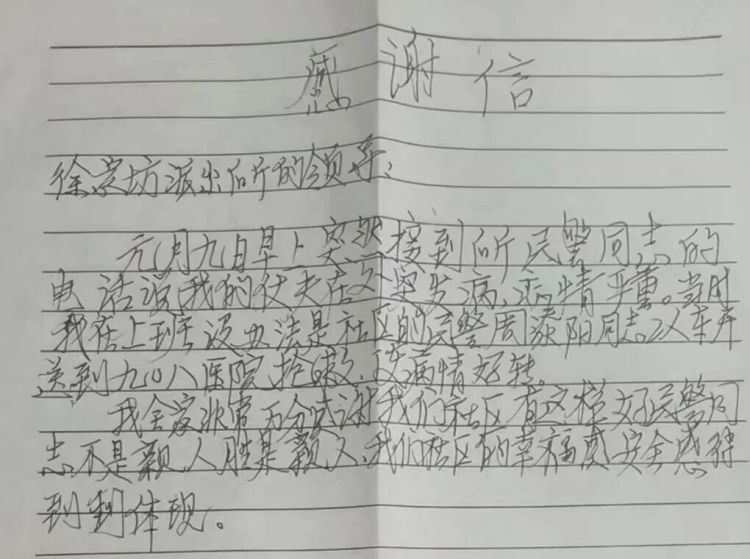 感谢信
徐家坊派出所的领导:
元月九日早上突然接到所民警同志的
电话说我的丈夫在突发病、病情严重。当时
我在上班没办法是社区的民警周荥阳同志
送到九〇八医院抢救、病情好转。
我全家非常万分感谢我们社区有这样好民警同
志不是亲人胜是亲人、我们社区的幸福感安全感得
到到体现。